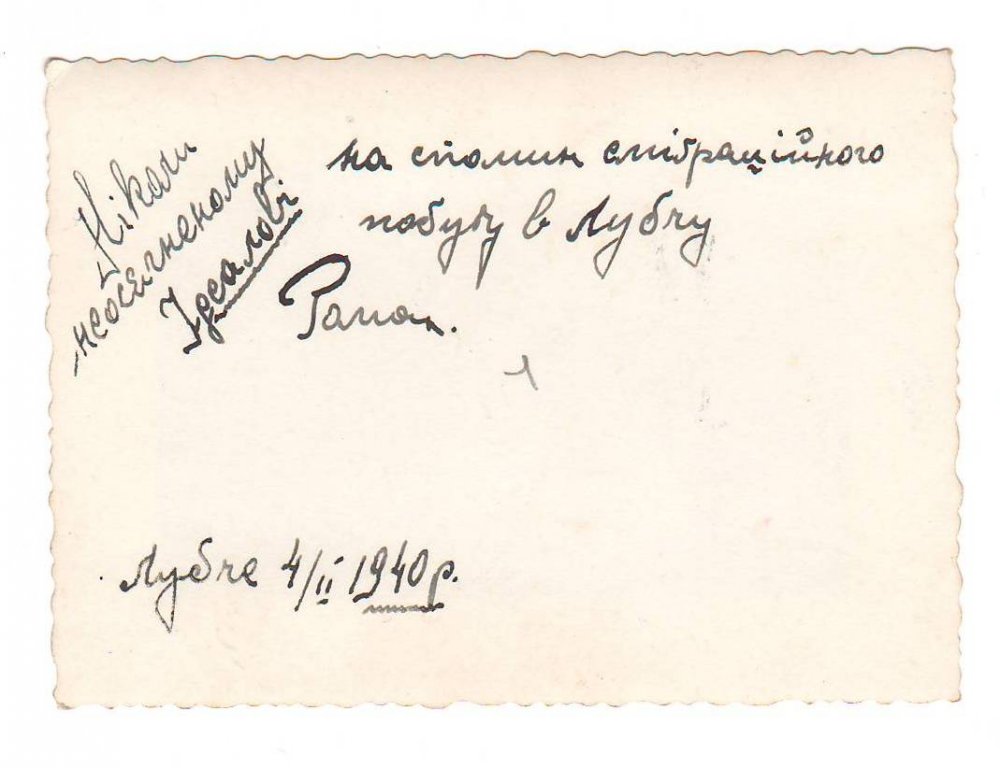 Ніколи
неосягненому
Ідеалові
на спомин еміграційного
побуту в Лубчу
Лубче 4/II 1940 р.